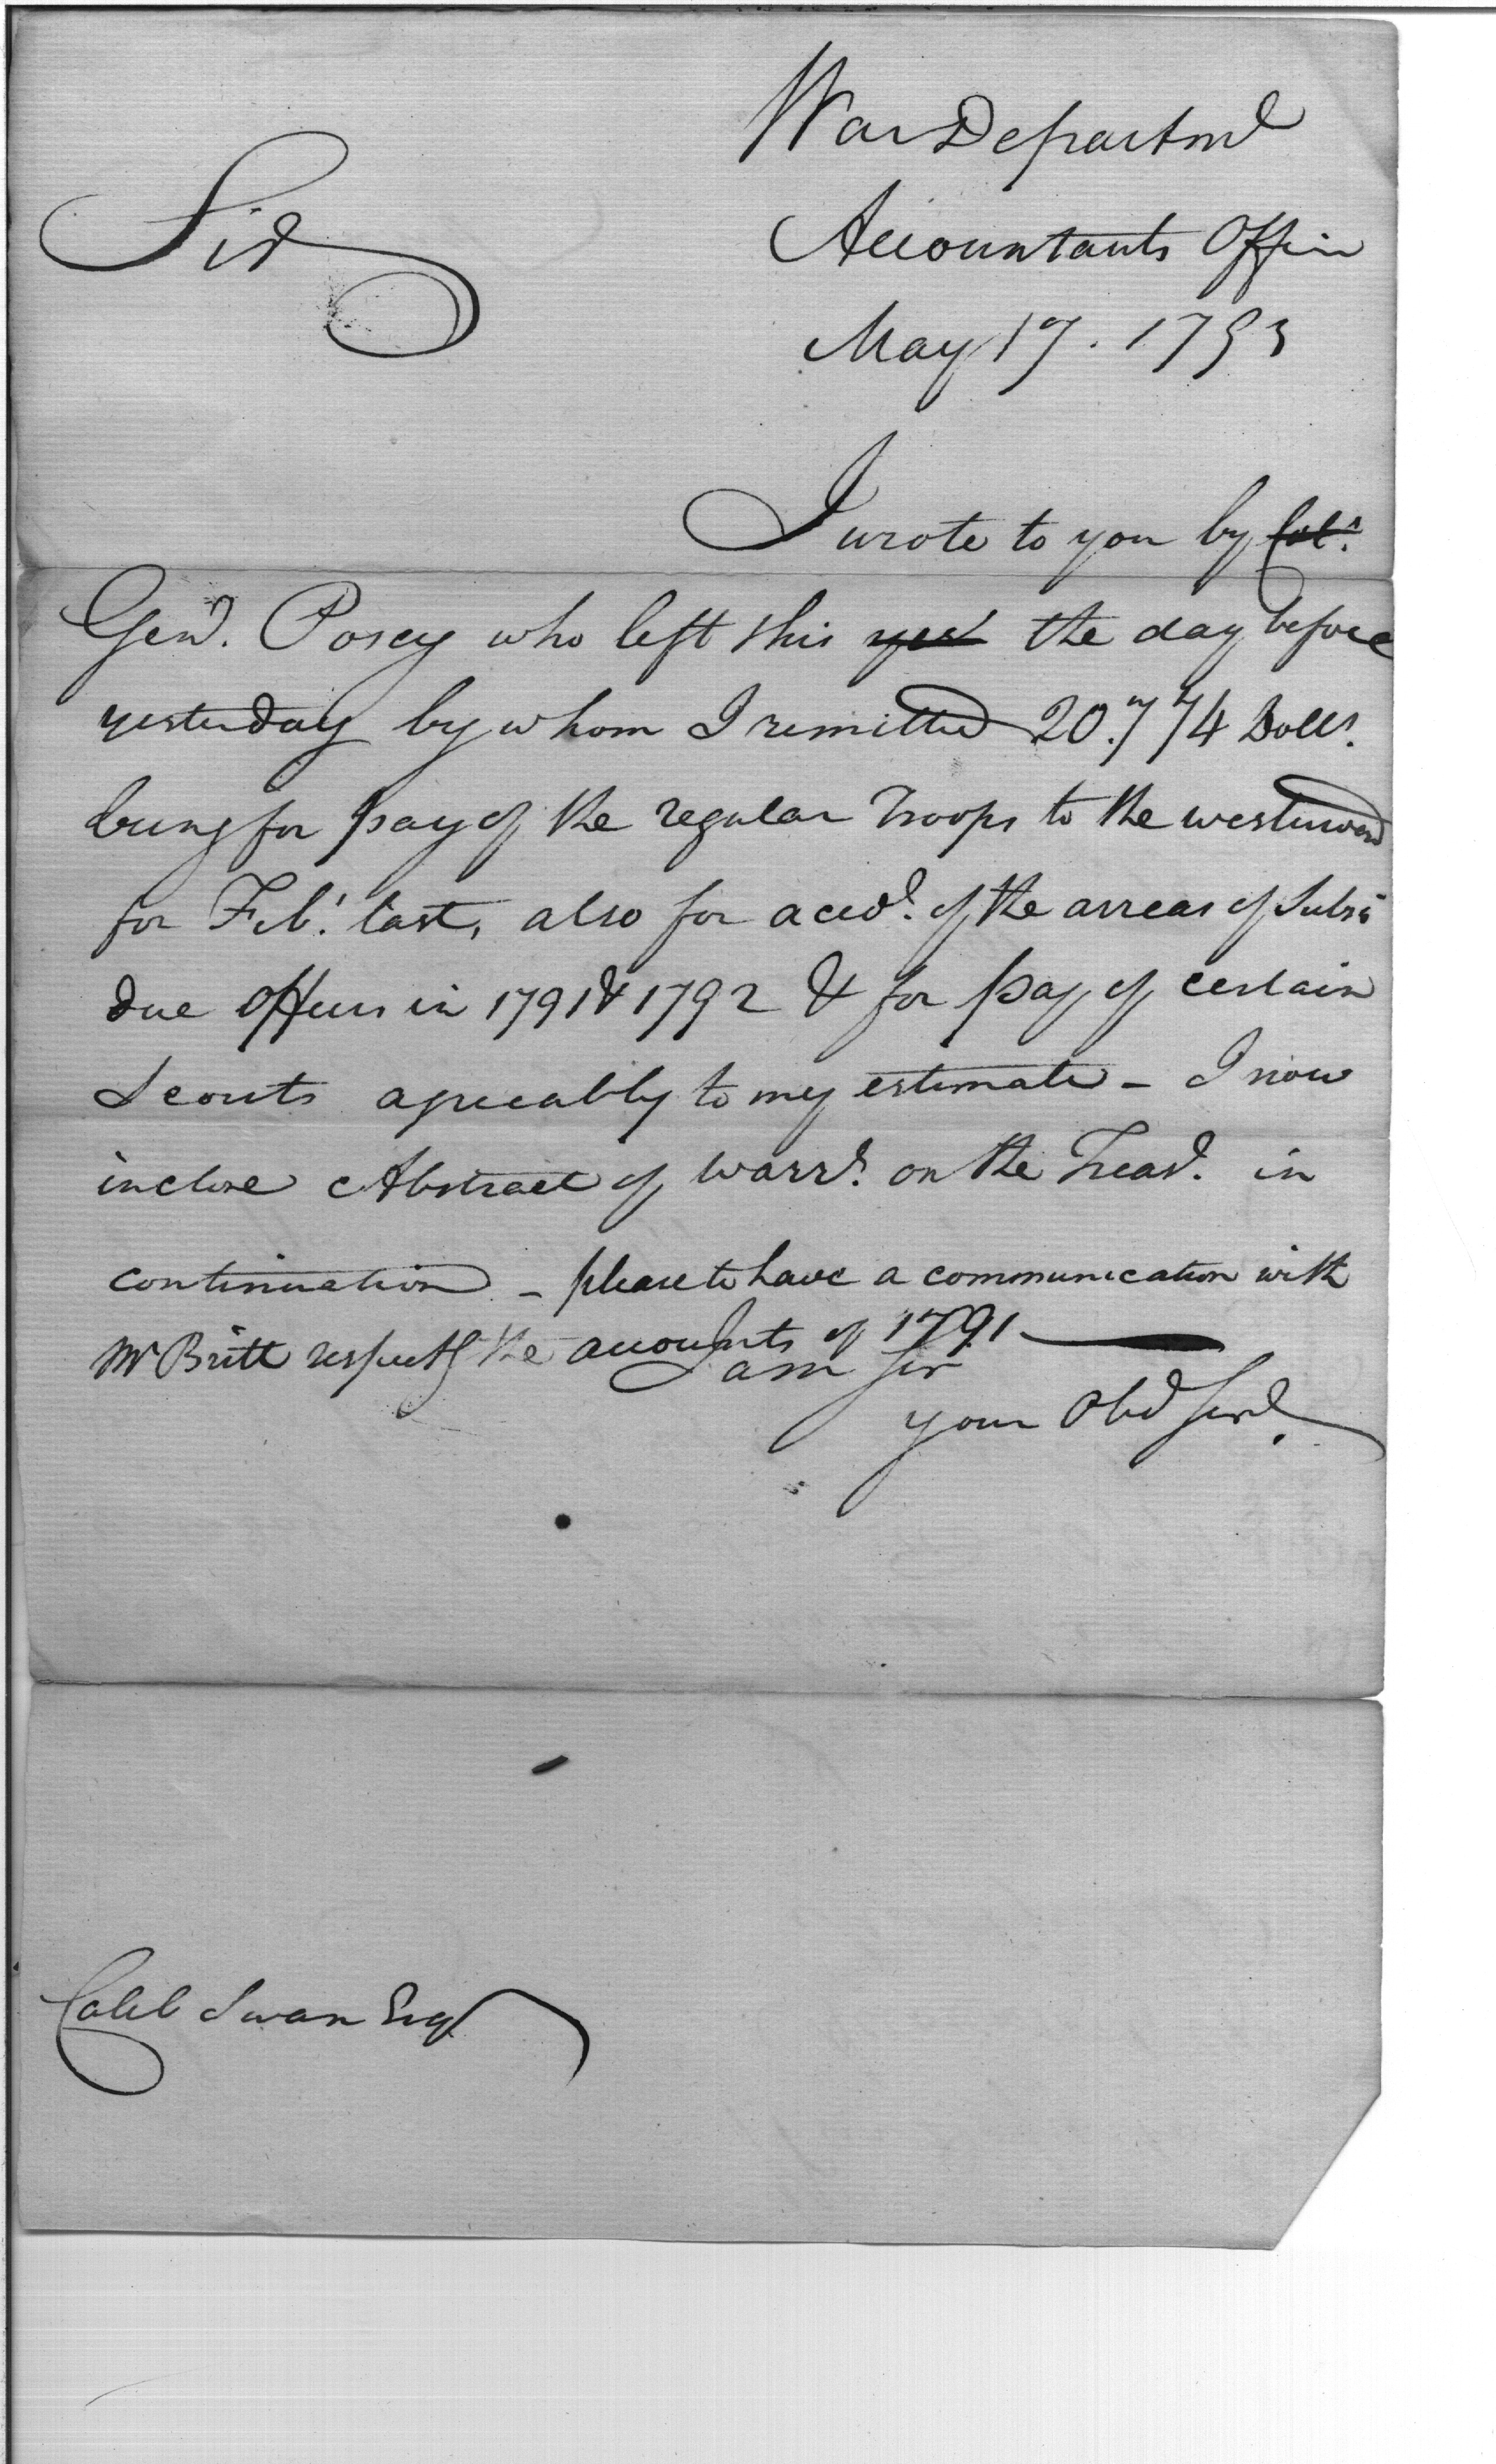 War Departmt
Accountants Office
Sir
May 17. 1793
I wrote to you by Col.
Genl. Posey who left this yest the day before
yesterday by whom I remitted 20.774 Dolls.
being for pay of the regular Troops to the westward
for Feb. last, also for acct. of the arrears of Subs
due Officers in 1791 & 1792 & for pay of certain
Scouts agreeably to my estimate - I now
inclose Abstract of Warrts. on the Treasr. in
continuation - please to have a communication with
Mr Britt respectg the accounts of 1791
I am Sir
your Obd Servt.
Caleb Swan Esq